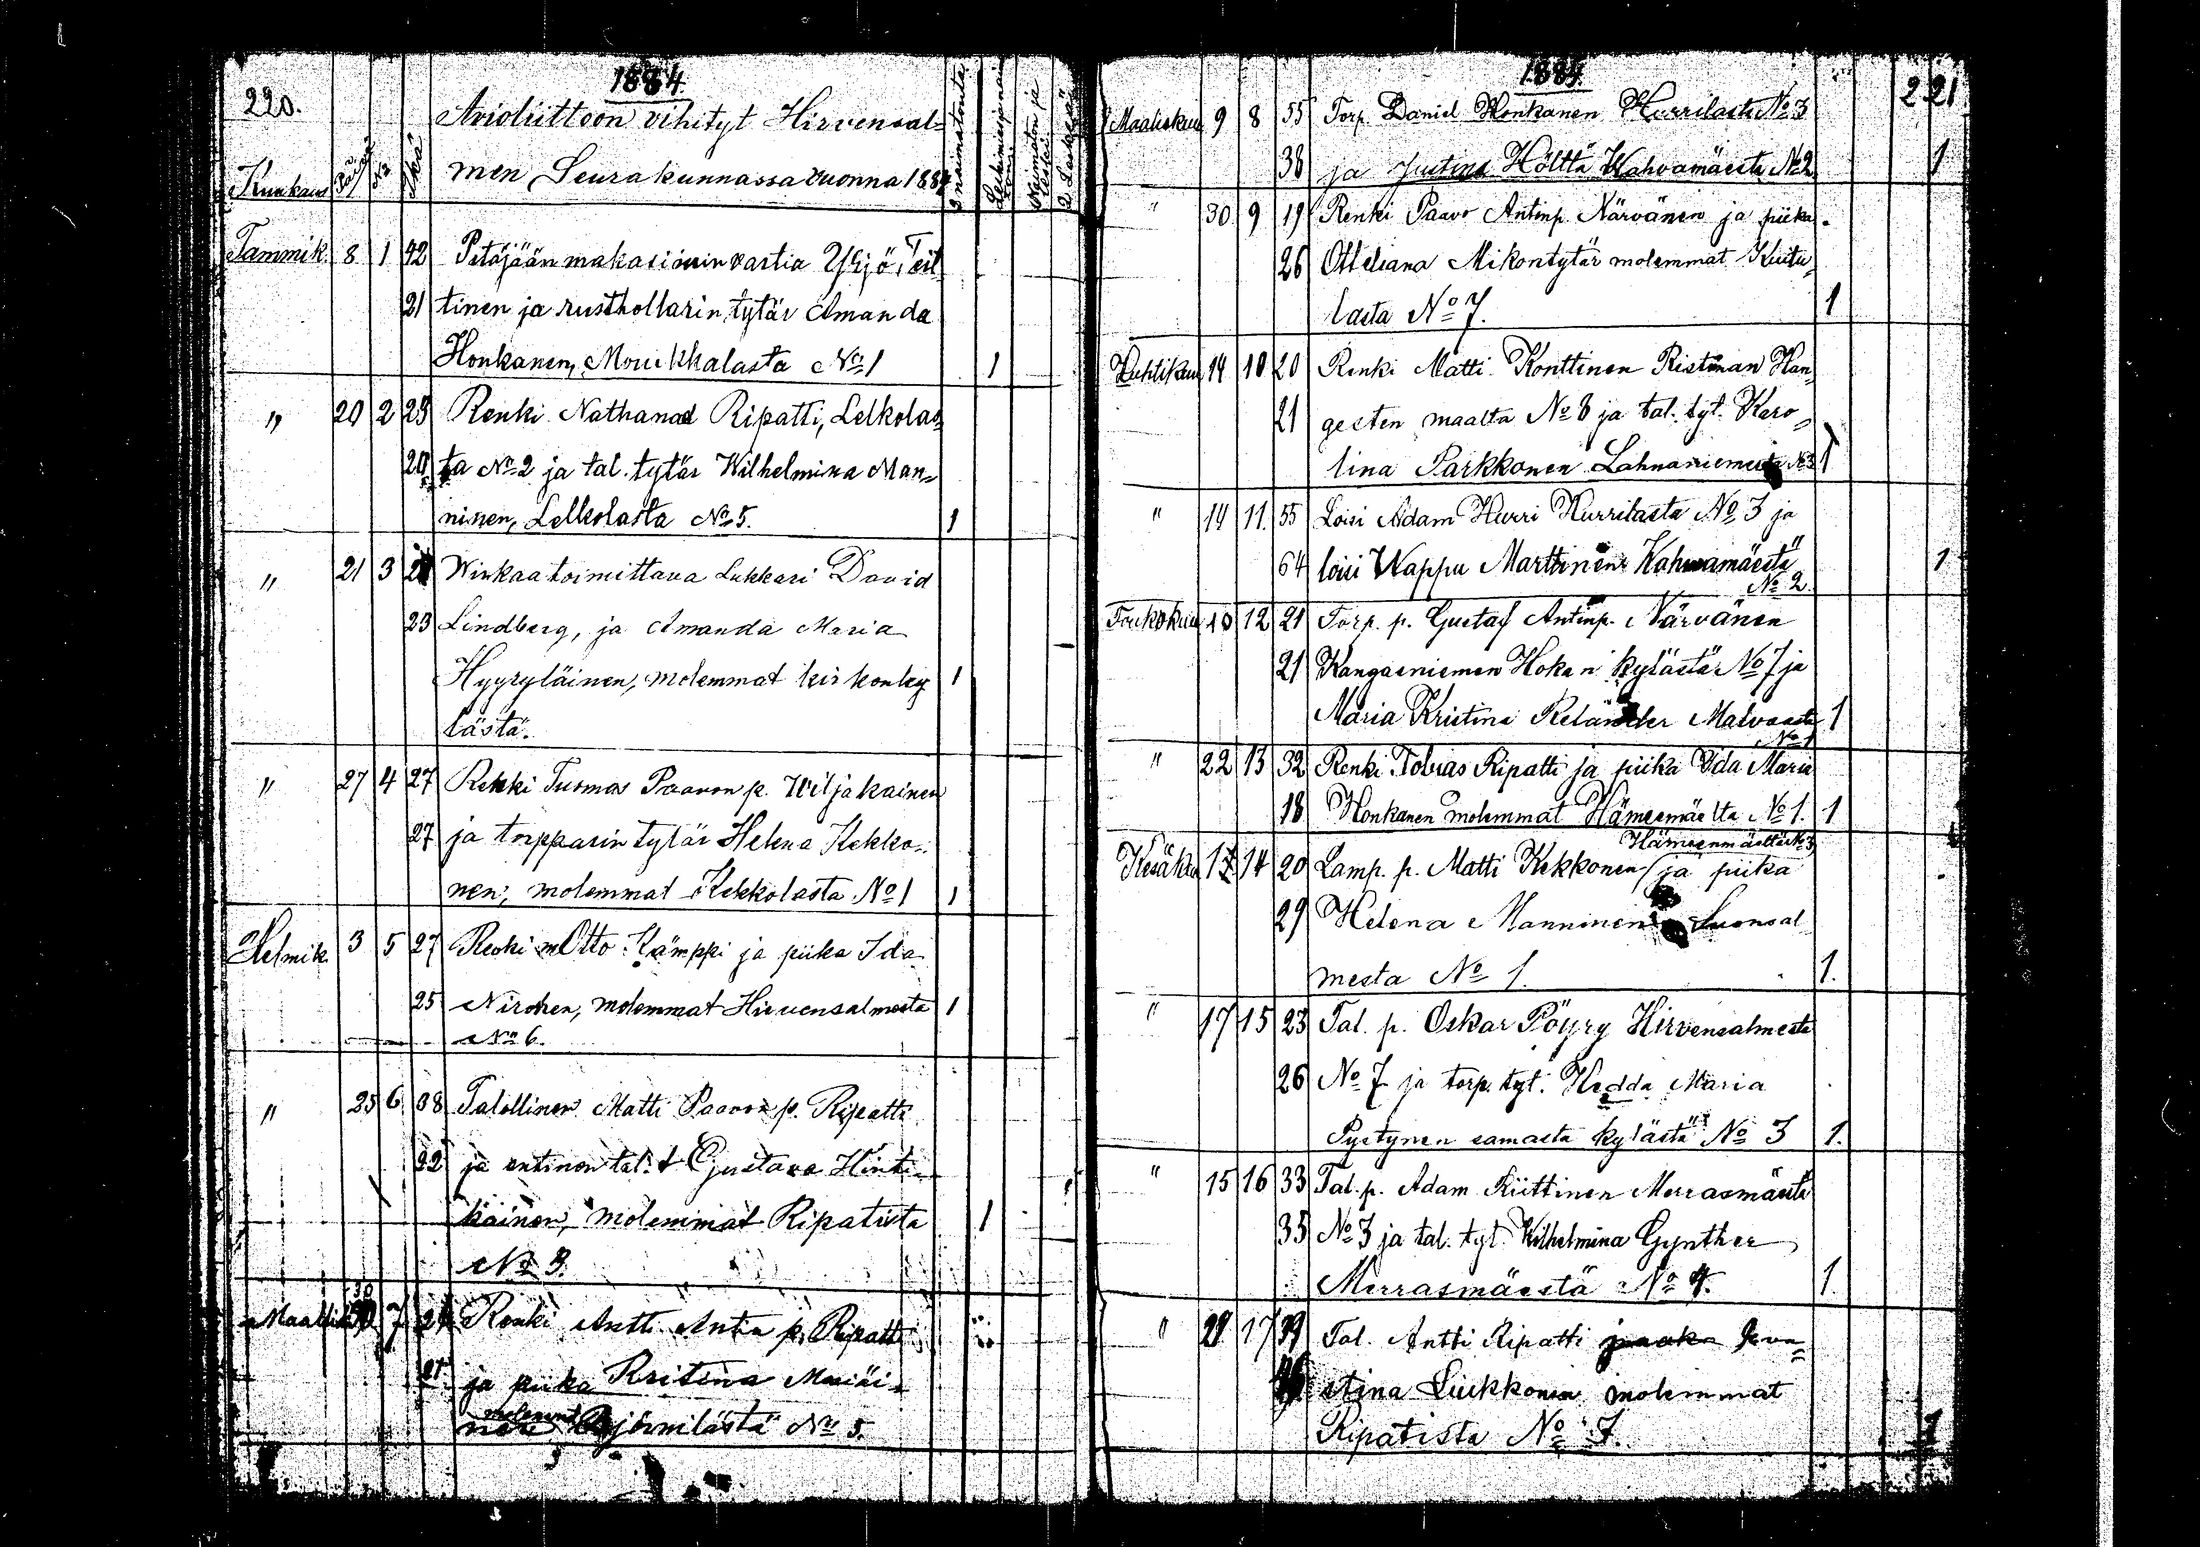 220.
1884.
Avioliittoon vihityt Hirvensal=
men Seurakunnassa vuonna 1884
Kuukausi Ikä
Tammik. 8 1 42 Petäjään makasiinin vartia Yrjö Teit
21 tinen ja rusthollarin tytär Amanda
Honkanen, Mouikkalasta No 1 1
" 20 2 Renki Nathanael Ripatti, Lelkolas=
20 ta No 2 ja tal. tytär Wilhelmina Man=
ninen, Lelkolasta No 5. 1
" 21 3 Wirkaatoimittava Lukkari David
23 Lindberg, ja Amanda Maria
Hyyryläinen, molemmat kirkonky 1
lästä.
" 27 4 27 Renki Tuomas Paavon p. Wiljakainen
27 ja torpparin tytär Helena Kekko=
nen, molemmat Kekkolasta No 1 1
Helmik. 3 5 27 Renki Otto Kämppi ja piika Ida
25 Nironen, molemmat Hirvensalmesta 1
No 6.
" 25 6 38 Talollinen Matti Paavon p. Ripatti
22 ja entinen tal. t Gustava Hinti=
käinen, molemmat Ripatista 1
No 8.
Maalisk. 7 Renki Antti Antin p. Ripatti
ja piika Kristina
molemmat No 5.
1884.
221
Maaliskuu 9 8 55 Torp. Daniel Honkanen Hurrilasta No 3
38 ja Justina Hölttä Kahvamäestä No 2 1
" 30 9 19 Renki Paavo Antinp. Närvänen ja piika
26 Otteliana Mikontytär molemmat Kuitu=
lasta No 7. 1
Huhtikuu 14 10 20 Renki Matti Konttinen Ristiinan Han=
21 gesten maalta No 8 ja tal. tyt. Karo=
lina Parkkonen Lahnaniemestä No 3 1
" 14 11. 55 Loisi Adam Hurri Hurrilasta No 3 ja
64 loisi Wappu Marttinen Kahvamäestä 1
No 2.
Toukokuu 10 12 21 Torp. p. Gustaf Antinp. Närvänen
21 Kangasniemen Hokan kylästä No 7 ja
Maria Kristina Reländer Malvaasta 1
No 1
" 22 13 32 Renki Tobias Ripatti ja piika Ida Maria
18 Honkanen molemmat Hämeenmäeltä No 1. 1
Hämeenmäeltä No 3
Kesäkuu 14 20 Lamp. p. Matti Kekkonen / ja piika
29 Helena Manninen Suonsal
mesta No 1. 1.
" 17 15 23 Tal. p. Oskar Pöyry Hirvensalmesta
26 No 7 ja torp. tyt. Hedda Maria
Pystynen samasta kylästä No 3 1.
" 15 16 33 Tal. p. Adam Kiittinen Merrasmäestä
35 No 3 ja tal. tyt. Wilhelmina Gynther
Merrasmäestä No 4. 1.
" 17 39 Tal. Antti Ripatti
stina Liukkonen molemmat
Ripatista No 7. 1